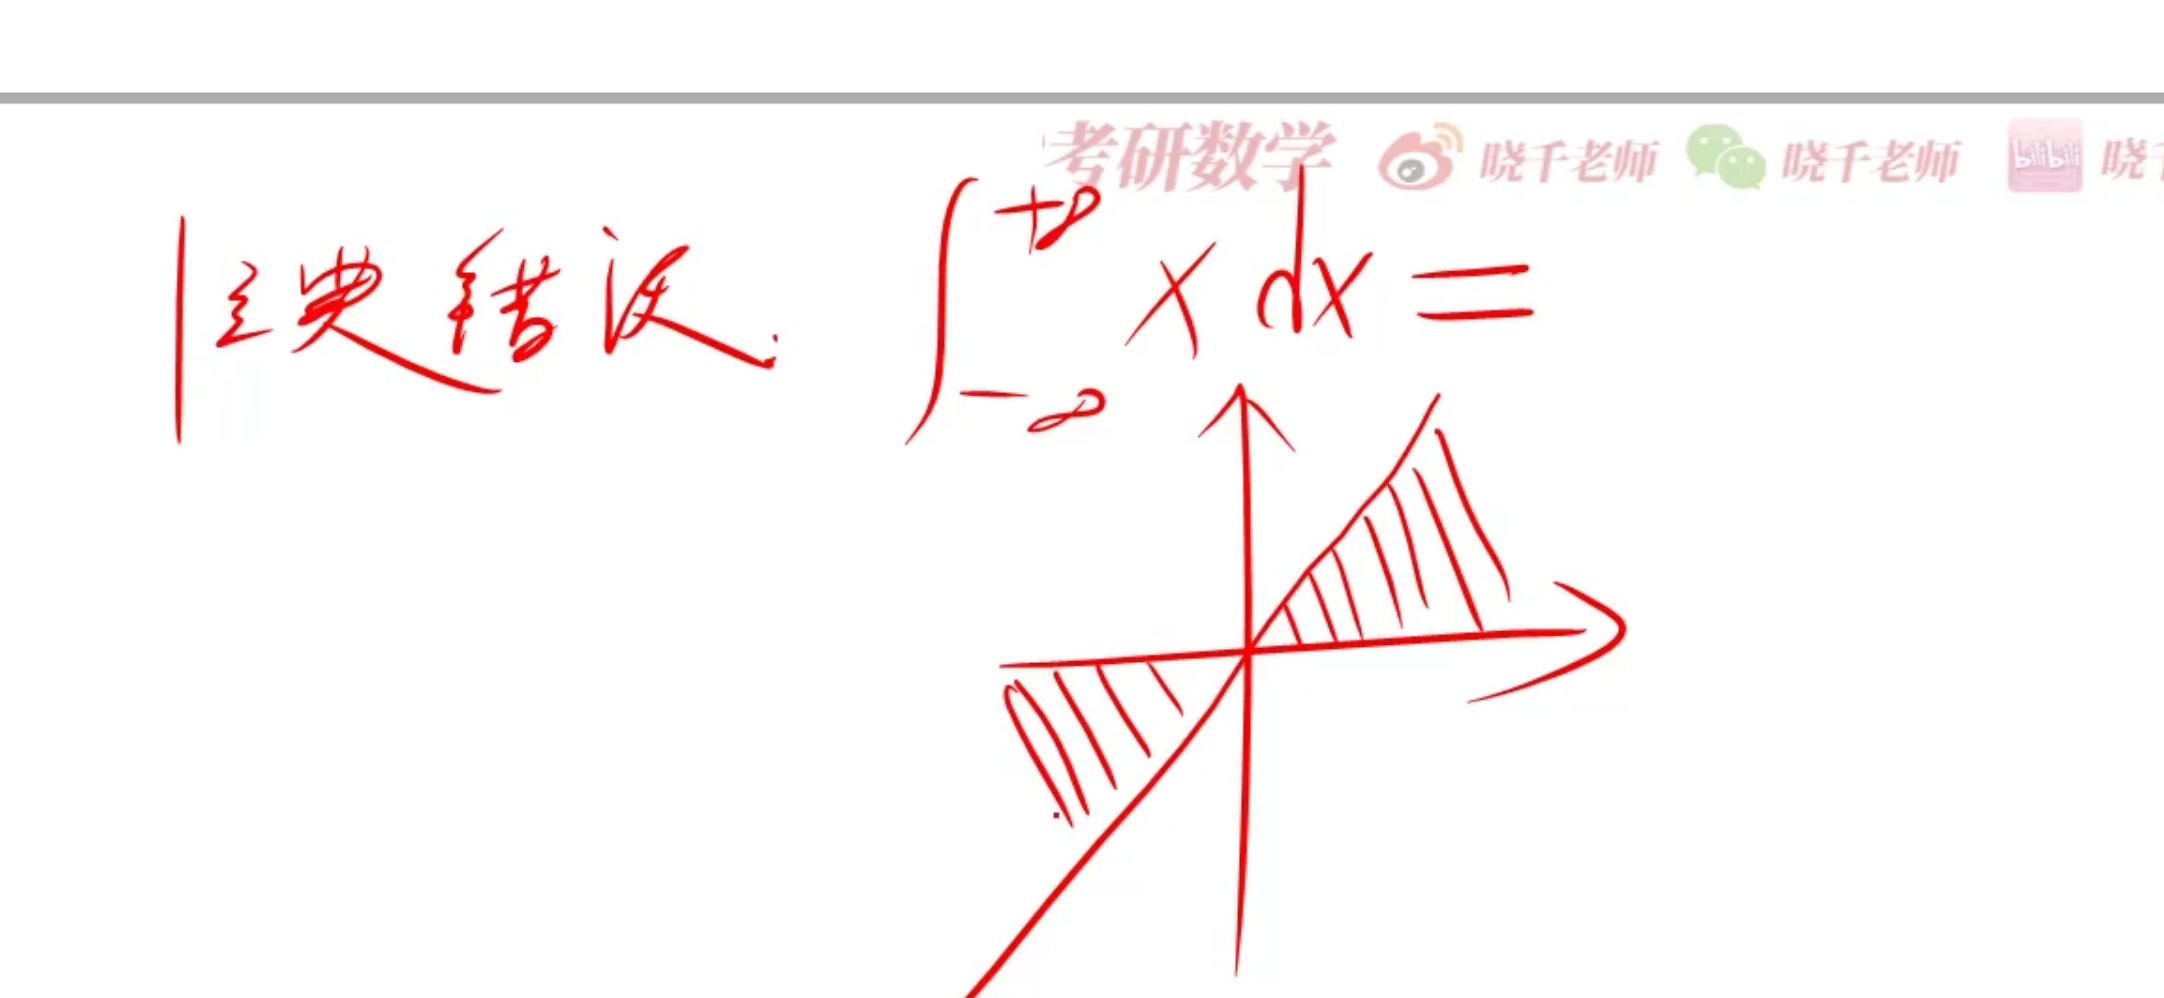 考研数学 晓千老师 晓千老师 bilibili 晓千
经典错误: ∫_{-∞}^{+∞} x dx =